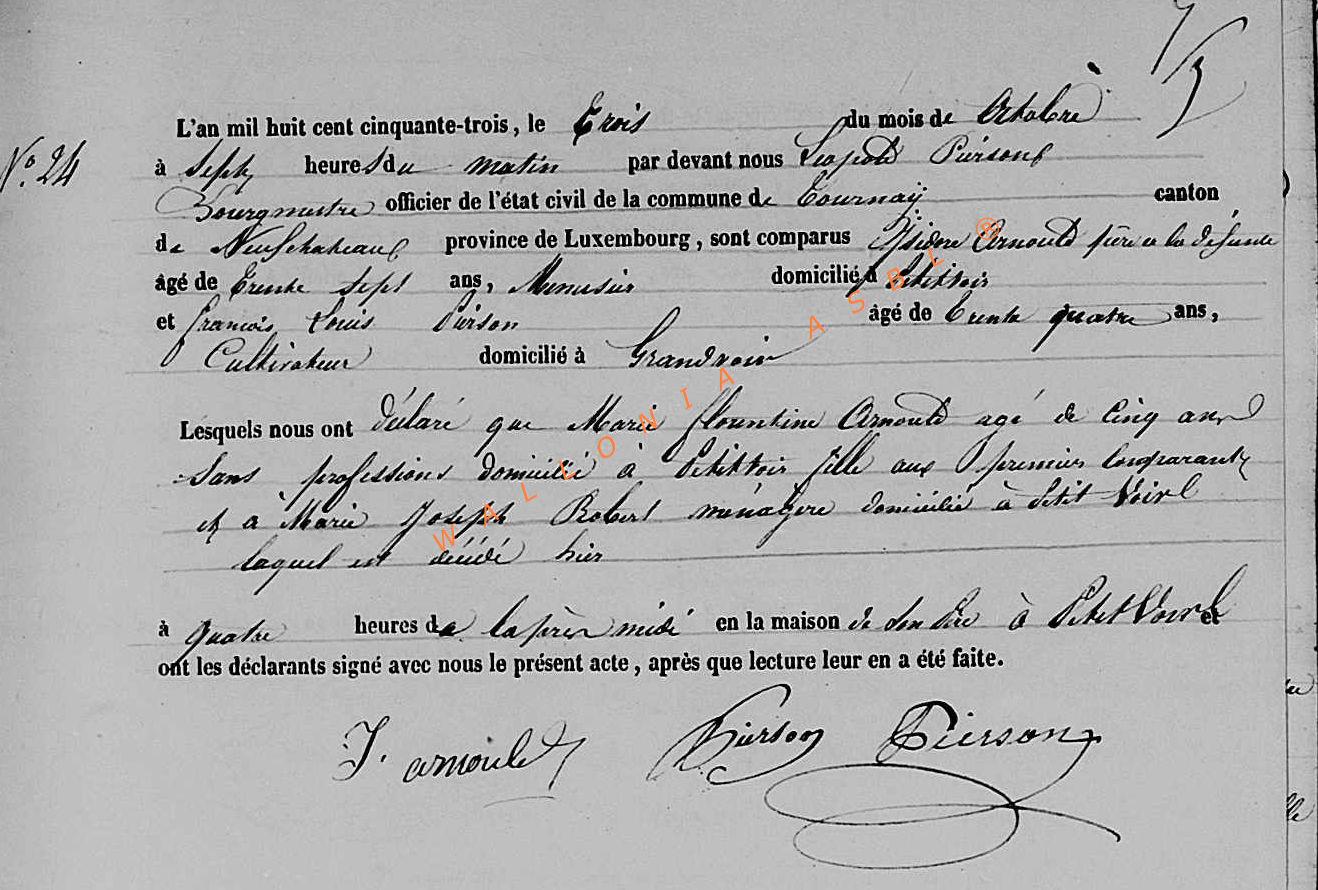 7/3
No. 24
L'an mil huit cent cinquante-trois, le Trois du mois de Octobre
à Sept heures du matin par devant nous Léopold Pierson
Bourgmestre officier de l'état civil de la commune de Tournay canton
de Neufchateau province de Luxembourg, sont comparus Isidore Arnould père a la défunte
âgé de Trente sept ans, Menusier domicilié à Petitvoir
et francois Louis Pierson âgé de Trente quatre ans,
Cultivateur domicilié à Grandvoir
Lesquels nous ont déclaré que Marie flountine Arnould agé de Cinq ans
Sans professions domicilié à Petitvoir fille aux premier Comparant
et a Marie Joseph Robert ménagère domicilié à Petit Voir
laquel est décédé hier
à quatre heures de laprèr midi en la maison de son Père à Petit Voir et
ont les déclarants signé avec nous le présent acte, après que lecture leur en a été faite.
J. arnould Pierson Pierson
WALLONIA ASBL ®